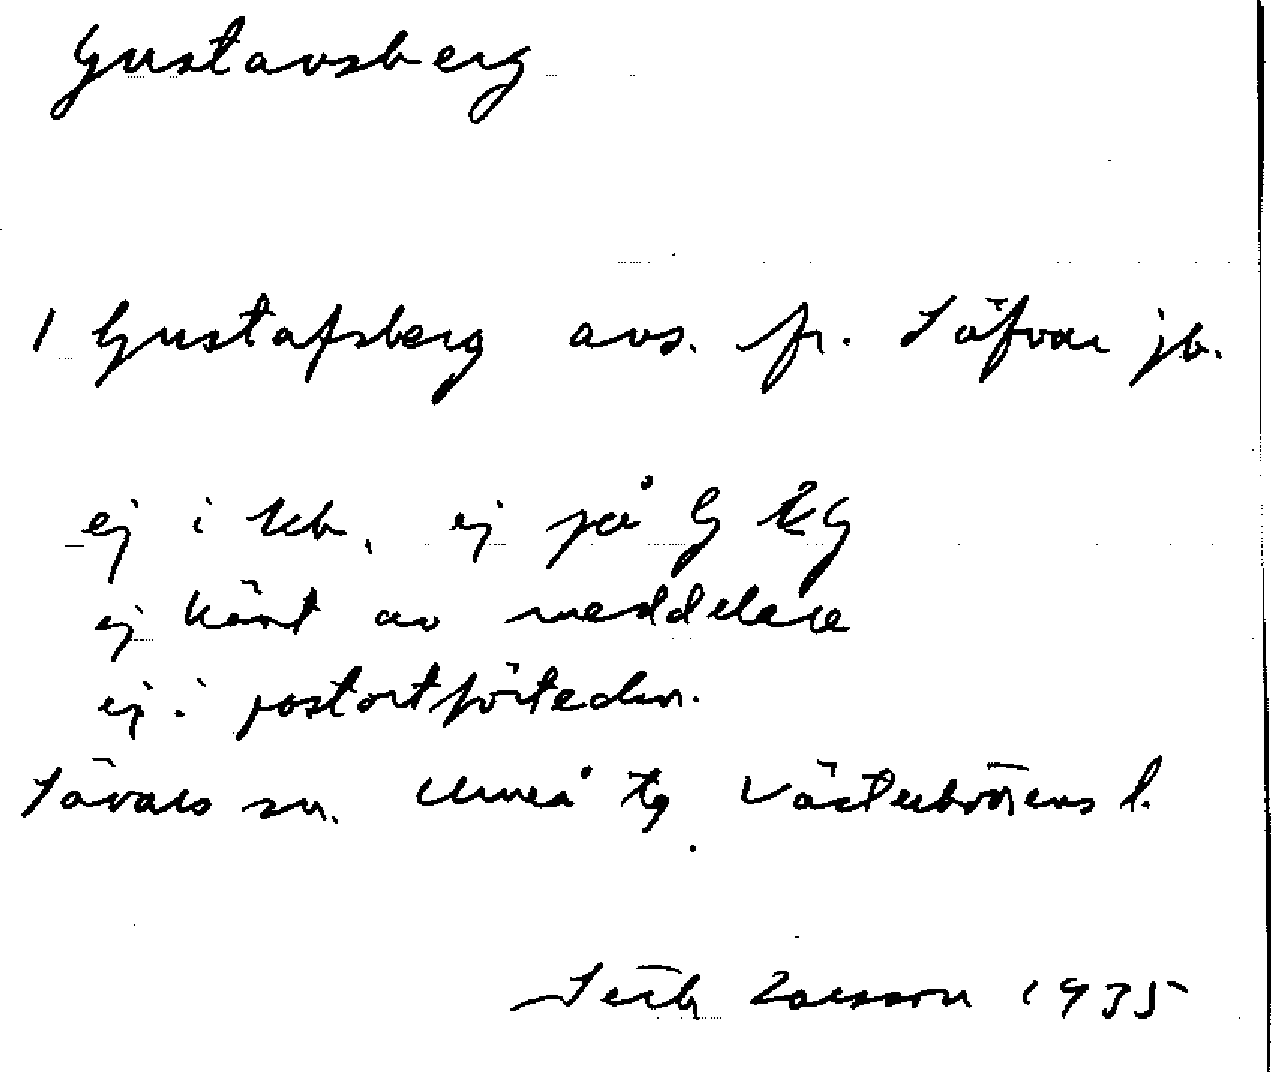 Gustavsberg
1 Gustafsberg avs. fr. Säfvar jb.
ej i kb, ej på G
ej känt av meddelare
ej i postortförteckn.
Sävars sn. Umeå tg Västerbottens l.
Seth Larsson 1935